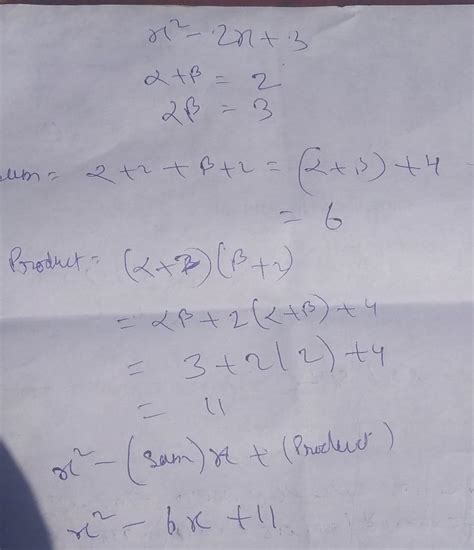 x² - 2x + 3
α + β = 2
αβ = 3
Sum = α + 2 + β + 2 = (α + β) + 4
= 6
Product = (α + 2) (β + 2)
= αβ + 2(α + β) + 4
= 3 + 2(2) + 4
= 11
x² - (Sum)x + (Product)
x² - 6x + 11